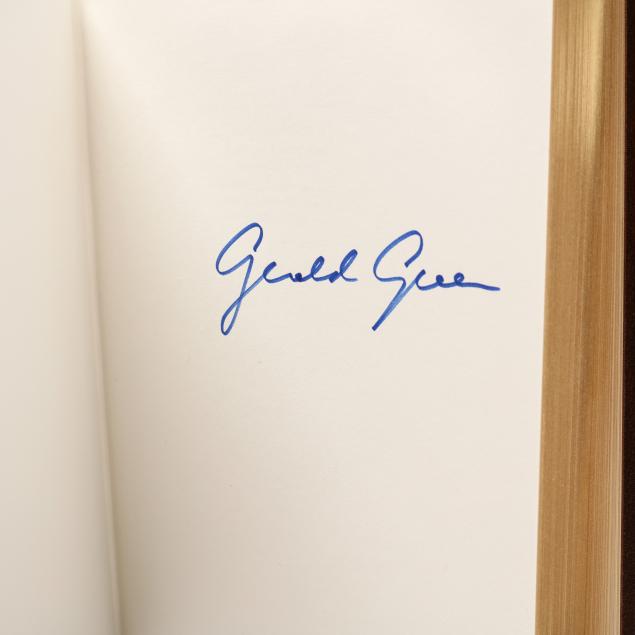 Gerald Green